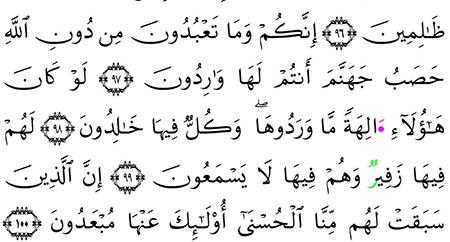 ظَٰلِمِينَ ﴿٩٦﴾ إِنَّكُمْ وَمَا تَعْبُدُونَ مِن دُونِ ٱللَّهِ
حَصَبُ جَهَنَّمَ أَنتُمْ لَهَا وَٰرِدُونَ ﴿٩٧﴾ لَوْ كَانَ
هَٰٓؤُلَآءِ ءَالِهَةً مَّا وَرَدُوهَا ۖ وَكُلٌّ فِيهَا خَٰلِدُونَ ﴿٩٨﴾ لَهُمْ
فِيهَا زَفِيرٌ وَهُمْ فِيهَا لَا يَسْمَعُونَ ﴿٩٩﴾ إِنَّ ٱلَّذِينَ
سَبَقَتْ لَهُم مِّنَّا ٱلْحُسْنَىٰٓ أُوْلَٰٓئِكَ عَنْهَا مُبْعَدُونَ ﴿١٠٠﴾